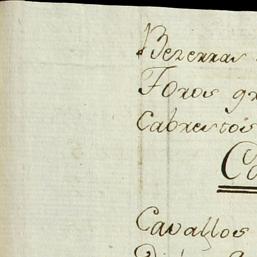 Bezerras
Foros gr
Cabrestos
Ca
Cavallos